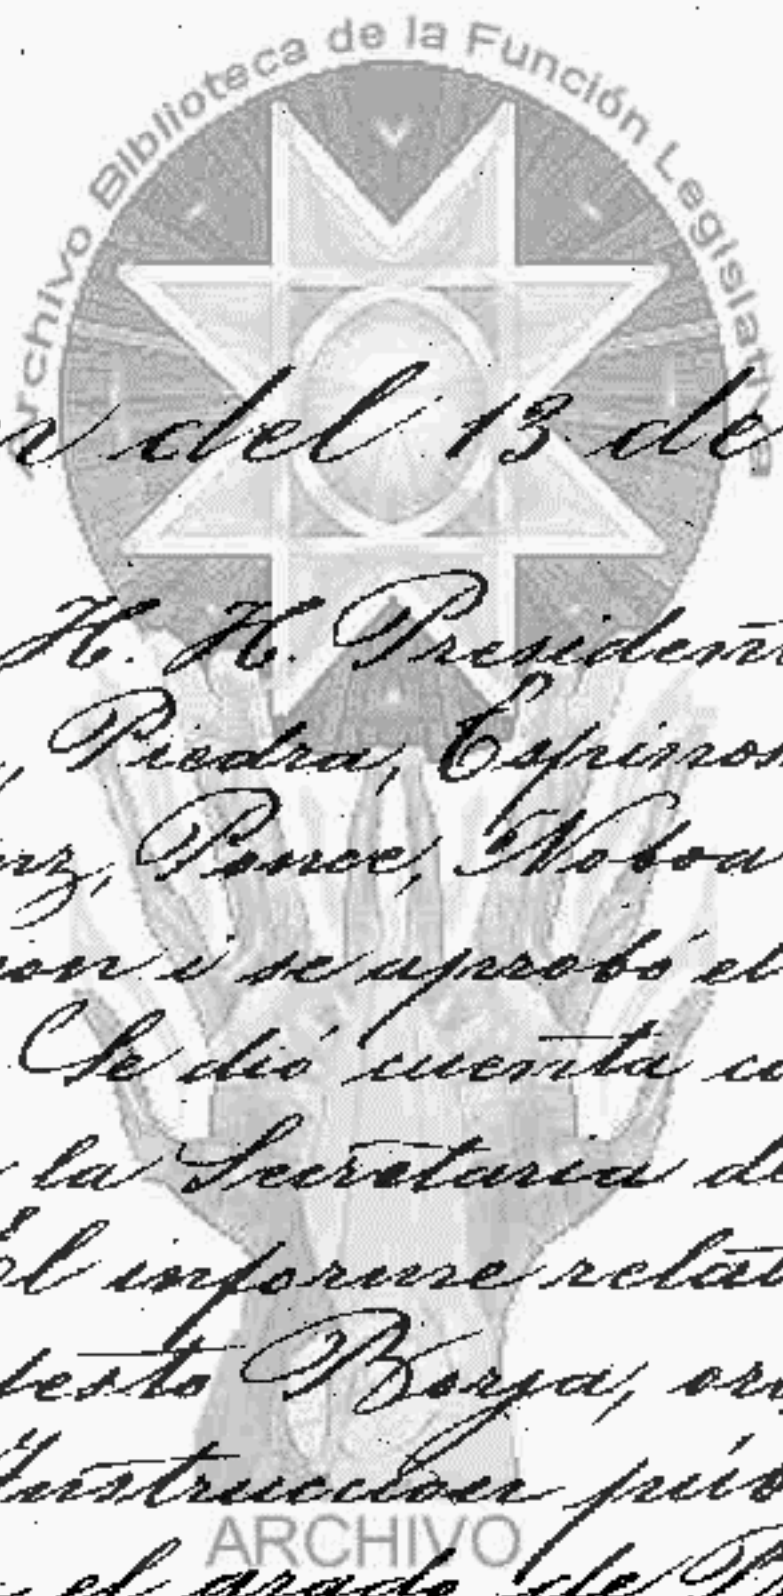 Archivo Biblioteca de la Función Legislativa
del 13 de
H. H. President
, Piedra, Espinos
rz, Ponce, Noboa
ion i se aprobó el
Se dió cuenta co
la Secretaria de
El informe relat
desto Borja, or
Instruccion púb
ARCHIVO
el grado de